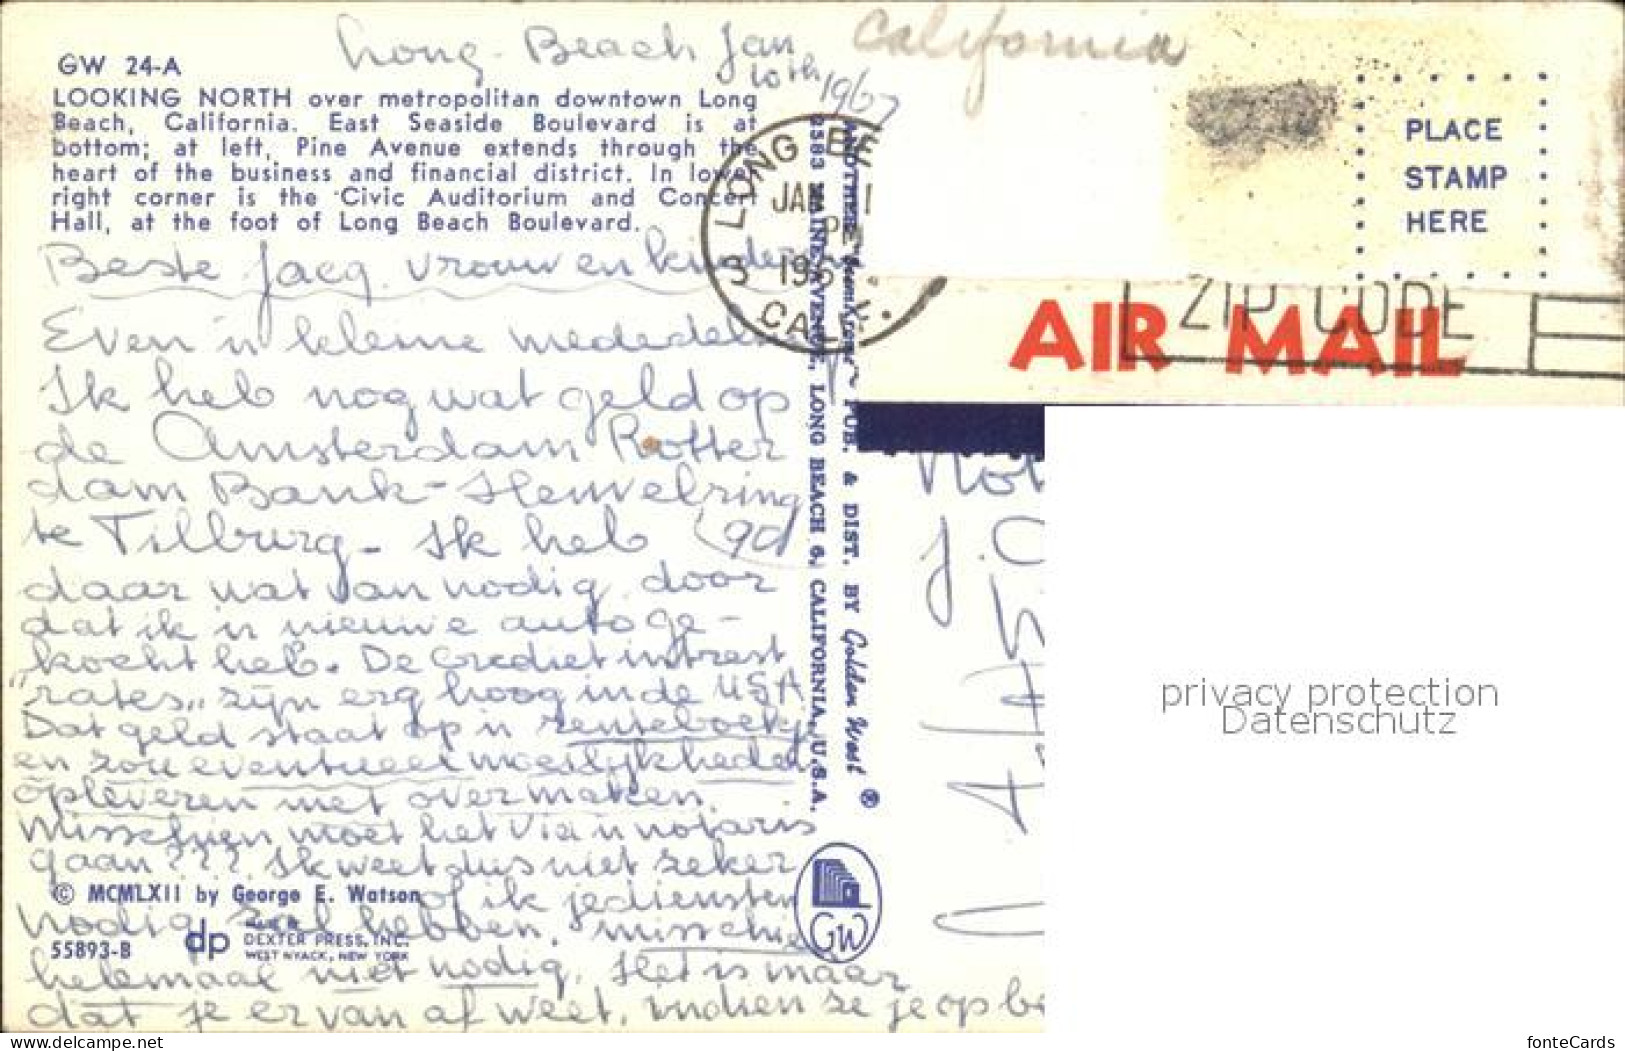 Long Beach Jan 10th 1967
California
GW 24-A
LOOKING NORTH over metropolitan downtown Long
Beach, California. East Seaside Boulevard is at
bottom; at left, Pine Avenue extends through the
heart of the business and financial district. In lower
right corner is the Civic Auditorium and Concert
Hall, at the foot of Long Beach Boulevard.
LONG BE
JAN 11
PM
196
CALIF.
PLACE
STAMP
HERE
ZIP CODE
AIR MAIL
Beste Jacq. vrouw en kinderen
Even 'n kleine mededeling
Ik heb nog wat geld op
de Amsterdam Rotter
dam Bank - Heuvelring
te Tilburg - Ik heb (90)
daar wat van nodig door
dat ik 'n nieuwe auto ge-
kocht heb. De crediet intrest
"rates" zijn erg hoog in de USA
Dat geld staat op 'n renteboekje
en zou eventueel moeilijkheden
opleveren met overmaken.
Misschien moet het via 'n notaris
gaan??? Ik weet dus niet zeker
of ik je diensten
nodig zal hebben, misschien
helemaal niet nodig. Het is maar
dat je er van af weet, indien ze je op be
© MCMLXII by George E. Watson
55893-B
dp
DEXTER PRESS, INC.
WEST NYACK, NEW YORK
PUB. & DIST. BY Golden West ®
2583 MAINE AVENUE, LONG BEACH 6, CALIFORNIA, U.S.A.
GW
J.
privacy protection
Datenschutz
www.ansichtskarten-center.de
fonteCards